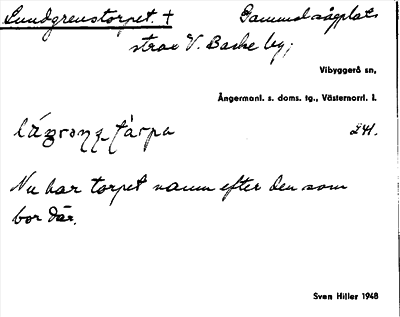 Lundgrenstorpet. † Gammal sågplats
strax V. Backe by;
Vibyggerå sn,
Ångermanl. s. doms. tg., Västernorrl. l.
241.
Nu har torpet namn efter den som
bor där.
Sven Hiller 1948